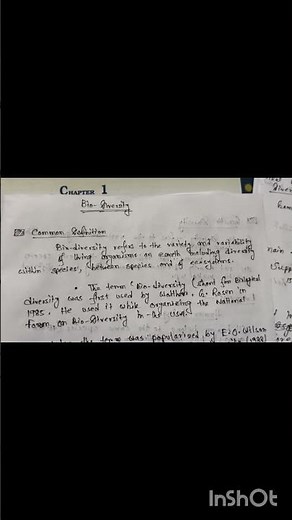 CHAPTER 1
Bio-diversity
Common Definition
Bio-diversity refers to the variety and variability
of living organisms on earth including diversity
within species, between species and of ecosystems.
• The term 'Bio-diversity' (short for Biological
diversity was first used by Walther. G. Rosen in
1985. He used it while organizing the National
Forum on Bio-diversity in
term was popularised by E.O. Wilson
InShOt